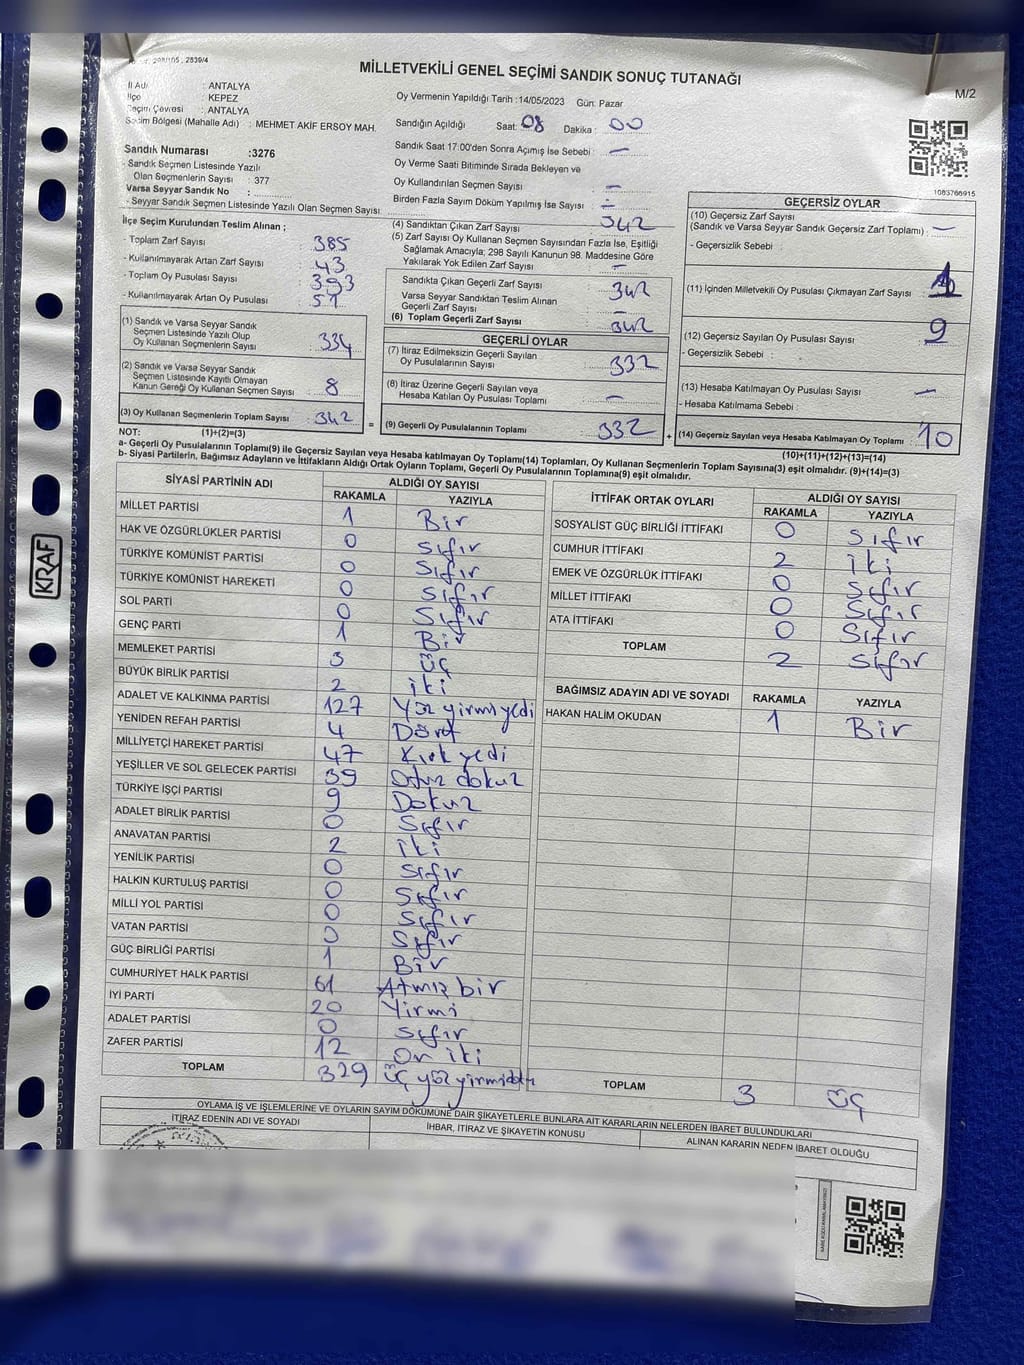 MİLLETVEKİLİ GENEL SEÇİMİ SANDIK SONUÇ TUTANAĞI
M/2
İl Adı : ANTALYA
İlçe : KEPEZ
Seçim Çevresi : ANTALYA
Seçim Bölgesi (Mahalle Adı) : MEHMET AKİF ERSOY MAH.
Oy Vermenin Yapıldığı Tarih :14/05/2023 Gün: Pazar
Sandığın Açıldığı Saat: 08 Dakika : 00
Sandık Saat 17:00'den Sonra Açımış İse Sebebi : —
Oy Verme Saati Bitiminde Sırada Bekleyen ve
Oy Kullandırılan Seçmen Sayısı : —
Birden Fazla Sayım Döküm Yapılmış İse Sayısı : —
1083766915
Sandık Numarası :3276
- Sandık Seçmen Listesinde Yazılı
Olan Seçmenlerin Sayısı : 377
Varsa Seyyar Sandık No :
- Seyyar Sandık Seçmen Listesinde Yazılı Olan Seçmen Sayısı:
İlçe Seçim Kurulundan Teslim Alınan ;
- Toplam Zarf Sayısı : 385
- Kullanılmayarak Artan Zarf Sayısı : 43
- Toplam Oy Pusulası Sayısı : 393
- Kullanılmayarak Artan Oy Pusulası : 51
(1) Sandık ve Varsa Seyyar Sandık
Seçmen Listesinde Yazılı Olup
Oy Kullanan Seçmenlerin Sayısı : 334
(2) Sandık ve Varsa Seyyar Sandık
Seçmen Listesinde Kayıtlı Olmayan
Kanun Gereği Oy Kullanan Seçmen Sayısı : 8
(3) Oy Kullanan Seçmenlerin Toplam Sayısı : 342
(4) Sandıktan Çıkan Zarf Sayısı : 342
(5) Zarf Sayısı Oy Kullanan Seçmen Sayısından Fazla İse, Eşitliği
Sağlamak Amacıyla; 298 Sayılı Kanunun 98. Maddesine Göre
Yakılarak Yok Edilen Zarf Sayısı : —
Sandıkta Çıkan Geçerli Zarf Sayısı : 342
Varsa Seyyar Sandıktan Teslim Alınan
Geçerli Zarf Sayısı :
(6) Toplam Geçerli Zarf Sayısı : 342
GEÇERLİ OYLAR
(7) İtiraz Edilmeksizin Geçerli Sayılan
Oy Pusulalarının Sayısı : 332
(8) İtiraz Üzerine Geçerli Sayılan veya
Hesaba Katılan Oy Pusulası Toplamı : —
= (9) Geçerli Oy Pusulalarının Toplamı : 332
GEÇERSİZ OYLAR
(10) Geçersiz Zarf Sayısı
(Sandık ve Varsa Seyyar Sandık Geçersiz Zarf Toplamı) : —
- Geçersizlik Sebebi :
(11) İçinden Milletvekili Oy Pusulası Çıkmayan Zarf Sayısı : 1
(12) Geçersiz Sayılan Oy Pusulası Sayısı : 9
- Geçersizlik Sebebi :
(13) Hesaba Katılmayan Oy Pusulası Sayısı : —
- Hesaba Katılmama Sebebi :
+ (14) Geçersiz Sayılan veya Hesaba Katılmayan Oy Toplamı : 10
NOT: (1)+(2)=(3)
(10)+(11)+(12)+(13)=(14)
a- Geçerli Oy Pusulalarının Toplamı(9) ile Geçersiz Sayılan veya Hesaba katılmayan Oy Toplamı(14) Toplamları, Oy Kullanan Seçmenlerin Toplam Sayısına(3) eşit olmalıdır. (9)+(14)=(3)
b- Siyasi Partilerin, Bağımsız Adayların ve İttifakların Aldığı Ortak Oyların Toplamı, Geçerli Oy Pusulalarının Toplamına(9) eşit olmalıdır.
SİYASİ PARTİNİN ADI ALDIĞI OY SAYISI
RAKAMLA YAZIYLA
MİLLET PARTİSİ 1 Bir
HAK VE ÖZGÜRLÜKLER PARTİSİ 0 sıfır
TÜRKİYE KOMÜNİST PARTİSİ 0 sıfır
TÜRKİYE KOMÜNİST HAREKETİ 0 sıfır
SOL PARTİ 0 sıfır
GENÇ PARTİ 1 Bir
MEMLEKET PARTİSİ 3 üç
BÜYÜK BİRLİK PARTİSİ 2 iki
ADALET VE KALKINMA PARTİSİ 127 Yüz yirmi yedi
YENİDEN REFAH PARTİSİ 4 Dört
MİLLİYETÇİ HAREKET PARTİSİ 47 Kırk yedi
YEŞİLLER VE SOL GELECEK PARTİSİ 39 Otuz dokuz
TÜRKİYE İŞÇİ PARTİSİ 9 Dokuz
ADALET BİRLİK PARTİSİ 0 sıfır
ANAVATAN PARTİSİ 2 iki
YENİLİK PARTİSİ 0 sıfır
HALKIN KURTULUŞ PARTİSİ 0 sıfır
MİLLİ YOL PARTİSİ 0 sıfır
VATAN PARTİSİ 0 sıfır
GÜÇ BİRLİĞİ PARTİSİ 1 Bir
CUMHURİYET HALK PARTİSİ 61 Atmış bir
İYİ PARTİ 20 Yirmi
ADALET PARTİSİ 0 sıfır
ZAFER PARTİSİ 12 On iki
TOPLAM 329 üç yüz yirmi
İTTİFAK ORTAK OYLARI ALDIĞI OY SAYISI
RAKAMLA YAZIYLA
SOSYALİST GÜÇ BİRLİĞİ İTTİFAKI 0 sıfır
CUMHUR İTTİFAKI 2 iki
EMEK VE ÖZGÜRLÜK İTTİFAKI 0 sıfır
MİLLET İTTİFAKI 0 sıfır
ATA İTTİFAKI 0 sıfır
TOPLAM 2 sıfır
BAĞIMSIZ ADAYIN ADI VE SOYADI RAKAMLA YAZIYLA
HAKAN HALİM OKUDAN 1 Bir
TOPLAM 3 üç
OYLAMA İŞ VE İŞLEMLERİNE VE OYLARIN SAYIM DÖKÜMÜNE DAİR ŞİKAYETLERLE BUNLARA AİT KARARLARIN NELERDEN İBARET BULUNDUKLARI
İTİRAZ EDENİN ADI VE SOYADI İHBAR, İTİRAZ VE ŞİKAYETİN KONUSU ALINAN KARARIN NEDEN İBARET OLDUĞU
KRAF